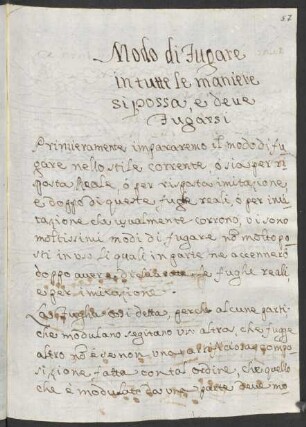 37
Modo di Fugare
in tutte le maniere
si possa, e deve
Fugarsi
Primieramente impararemo il modo di fu
gare nello stile corrente, ò sia per ri
sposta Reale, ò per risposta imitazione,
e doppo di queste fughe reali, ò per imi
tazione che ugualmente corrono, vi sono
moltissimi modi di fugare nò molto po
sti in uso li quali in parte ne accennerò
doppo avere le fughe reali,
e per imitazione.
La fuga così detta, perche alcune parti
che modulano seguano un'altra, che fugge
altro nò è se non una composi
sizione fatta con tà ordine, che quello
che è modulato da una parte deve mo